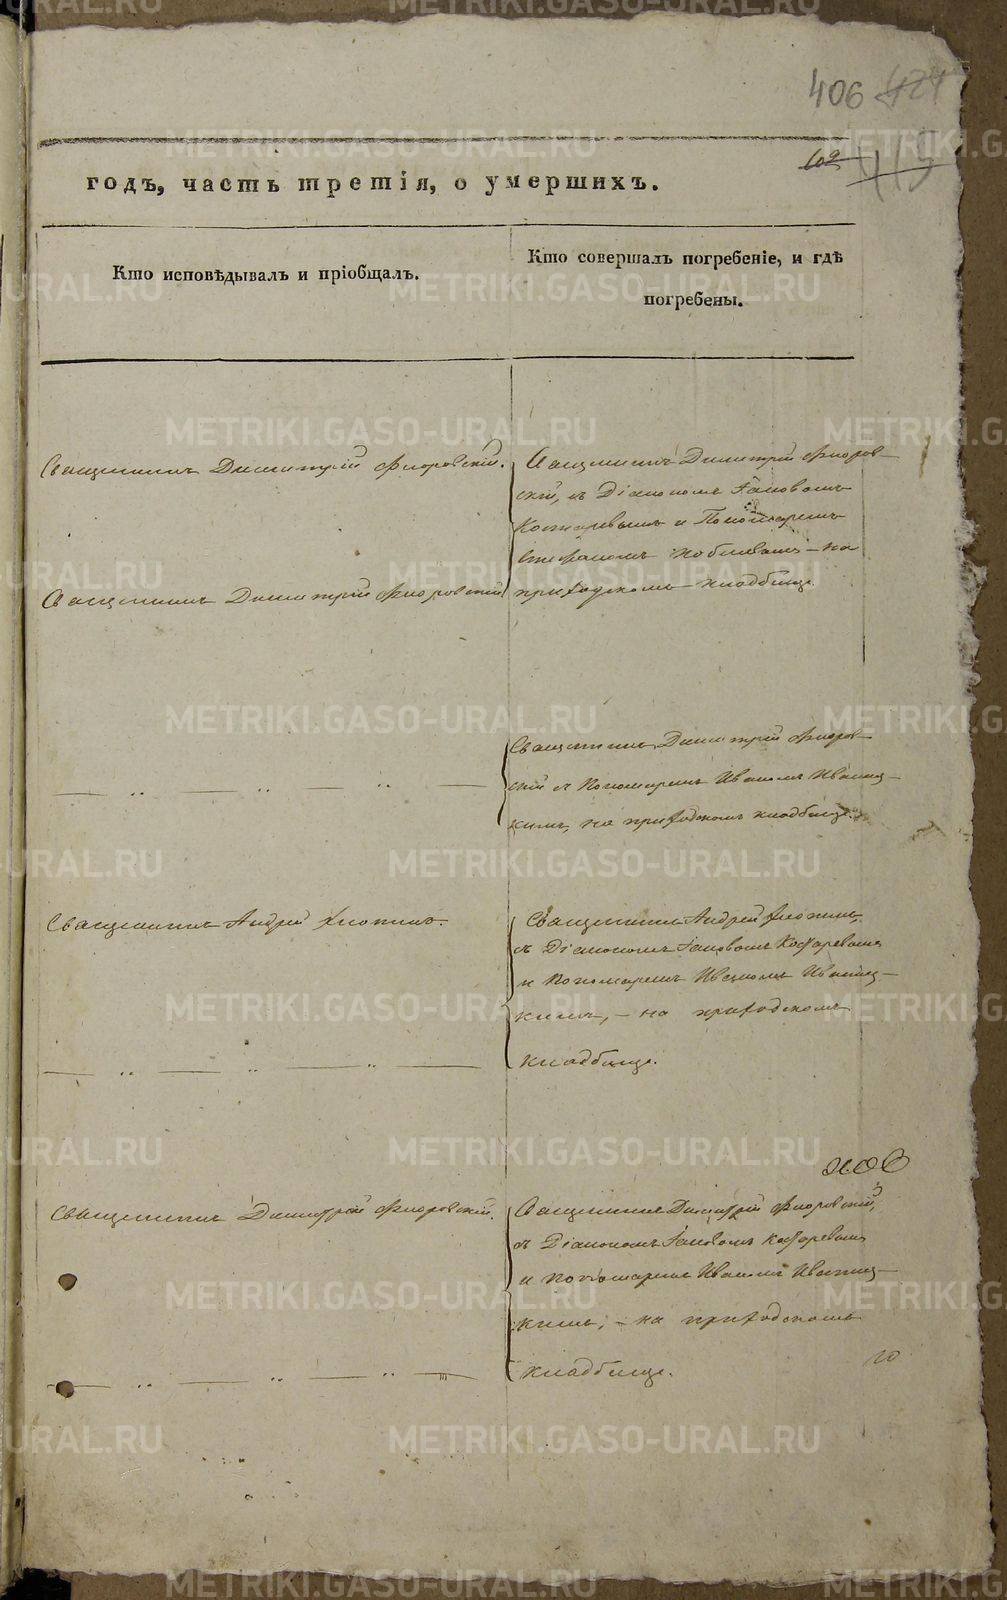 406 424
102 413
годъ, часть третія, о умершихъ.
Кто исповѣдывалъ и пріобщалъ.
Кто совершалъ погребеніе, и гдѣ
погребены.
Священникъ Димитрій Флоровскій.
Священникъ Димитрій Флоров-
скій, съ Діакономъ Іаковомъ
Костаревымъ и Пономаремъ
Стефаномъ на
приходскомъ кладбище.
Священникъ Димитрій Флоровскій
Священникъ Димитрій Флоров-
скій и Пономаремъ Иваномъ Ивании-
кимъ, на приходскомъ кладбище.
— „ — „ — „ —
Священникъ Андрей Хлопинъ.
Священникъ Андрей Хлопинъ,
съ Діакономъ Іаковомъ Костаревымъ
и Пономаремъ Иваномъ
кимъ, – на приходскомъ
кладбище.
— „ — „ — „ —
Священникъ Димитрій Флоровскій.
Священникъ Димитрій Флоровскій,
съ Діакономъ Іаковомъ Костаревымъ
и Пономаремъ Иваномъ
кимъ; – на приходскомъ
кладбище.
— „ — „ — „ —
METRIKI.GASO-URAL.RU